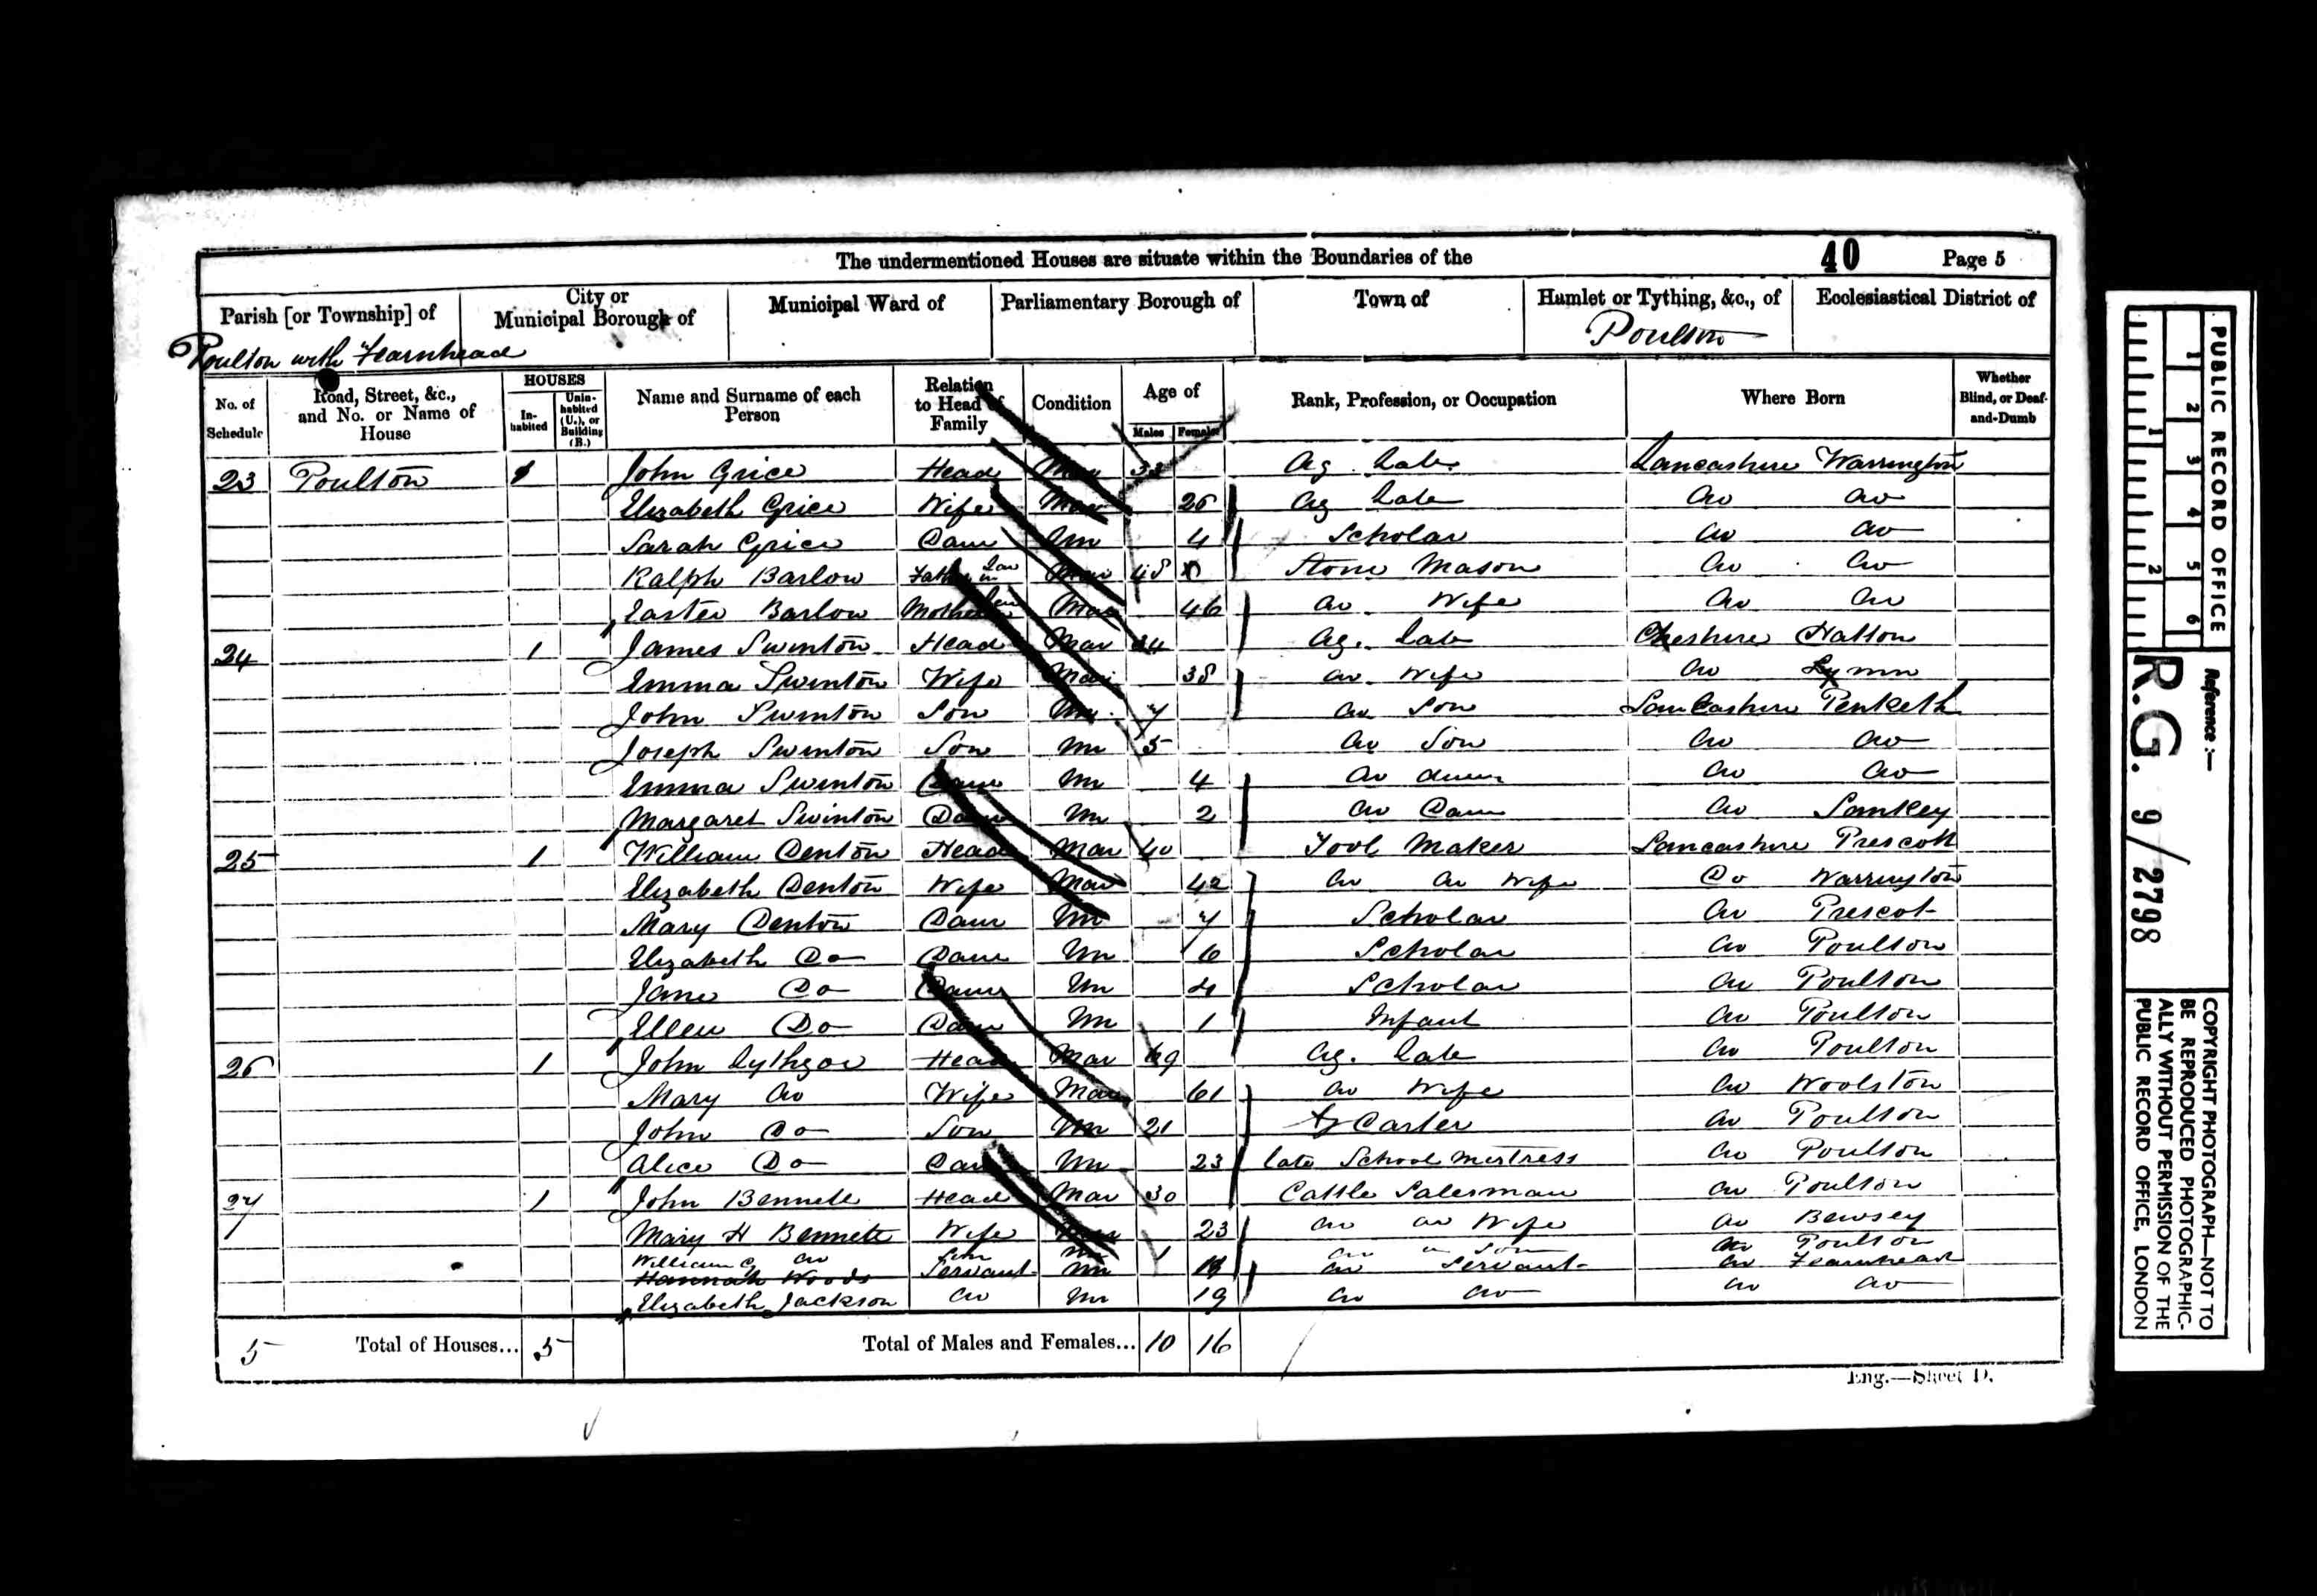 The undermentioned Houses are situate within the Boundaries of the 40 Page 5
Parish [or Township] of City or Municipal Borough of Municipal Ward of Parliamentary Borough of Town of Hamlet or Tything, &c., of Ecclesiastical District of
Poulton with Fearnhead Poulton
No. of Schedule Road, Street, &c., and No. or Name of House HOUSES In-habited Unin-habited (U.), or Building (B.) Name and Surname of each Person Relation to Head of Family Condition Age of Males Females Rank, Profession, or Occupation Where Born Whether Blind, or Deaf-and-Dumb
23 Poulton 1 John Grice Head Mar Ag. Lab. Lancashire Warrington
Elizabeth Grice Wife Mar 26 Ag Lab Do Do
Sarah Grice Daur Un 4 Scholar Do Do
Ralph Barlow Father in Law Mar 48 Stone Mason Do Do
Easter Barlow Mother Mar 46 Do Wife Do Do
24 1 James Swinton Head Mar 34 Ag. Lab Cheshire Hatton
Emma Swinton Wife Mar 38 Do Wife Do Lymm
John Swinton Son Un 7 Do Son Lancashire Penketh
Joseph Swinton Son Un 5 Do Son Do Do
Emma Swinton Daur Un 4 Do Do Do
Margaret Swinton Daur Un 2 Do Daur Do Sankey
25 1 William Denton Head Mar 40 Tool Maker Lancashire Prescott
Elizabeth Denton Wife Mar 42 Do Do Wife Do Warrington
Mary Denton Daur Un 7 Scholar Do Prescot
Elizabeth Do Daur Un 6 Scholar Do Poulton
Jane Do Daur Un 4 Scholar Do Poulton
Ellen Do Daur Un 1 Infant Do Poulton
26 1 John Lythgoe Head Mar 69 Ag. Lab Do Poulton
Mary Do Wife Mar 61 Do Wife Do Woolston
John Do Son Un 21 Carter Do Poulton
Alice Do Daur Un 23 late School Mistress Do Poulton
27 1 John Bennett Head Mar 30 Cattle Salesman Do Poulton
Mary H Bennett Wife Mar 23 Do Do Wife Do Bewsey
William G Do Son Un 1 Do Do Son Do Poulton
Hannah Woods Servant Un Do Servant Do Fearnhead
Elizabeth Jackson Do Un 19 Do Do Do Do
5 Total of Houses... 5 Total of Males and Females... 10 16
Eng.—Sheet D.
PUBLIC RECORD OFFICE
1 2 3 4 5 6
1 2
Reference :—
R.G. 9/2798
COPYRIGHT PHOTOGRAPH—NOT TO
BE REPRODUCED PHOTOGRAPHIC-
ALLY WITHOUT PERMISSION OF THE
PUBLIC RECORD OFFICE, LONDON